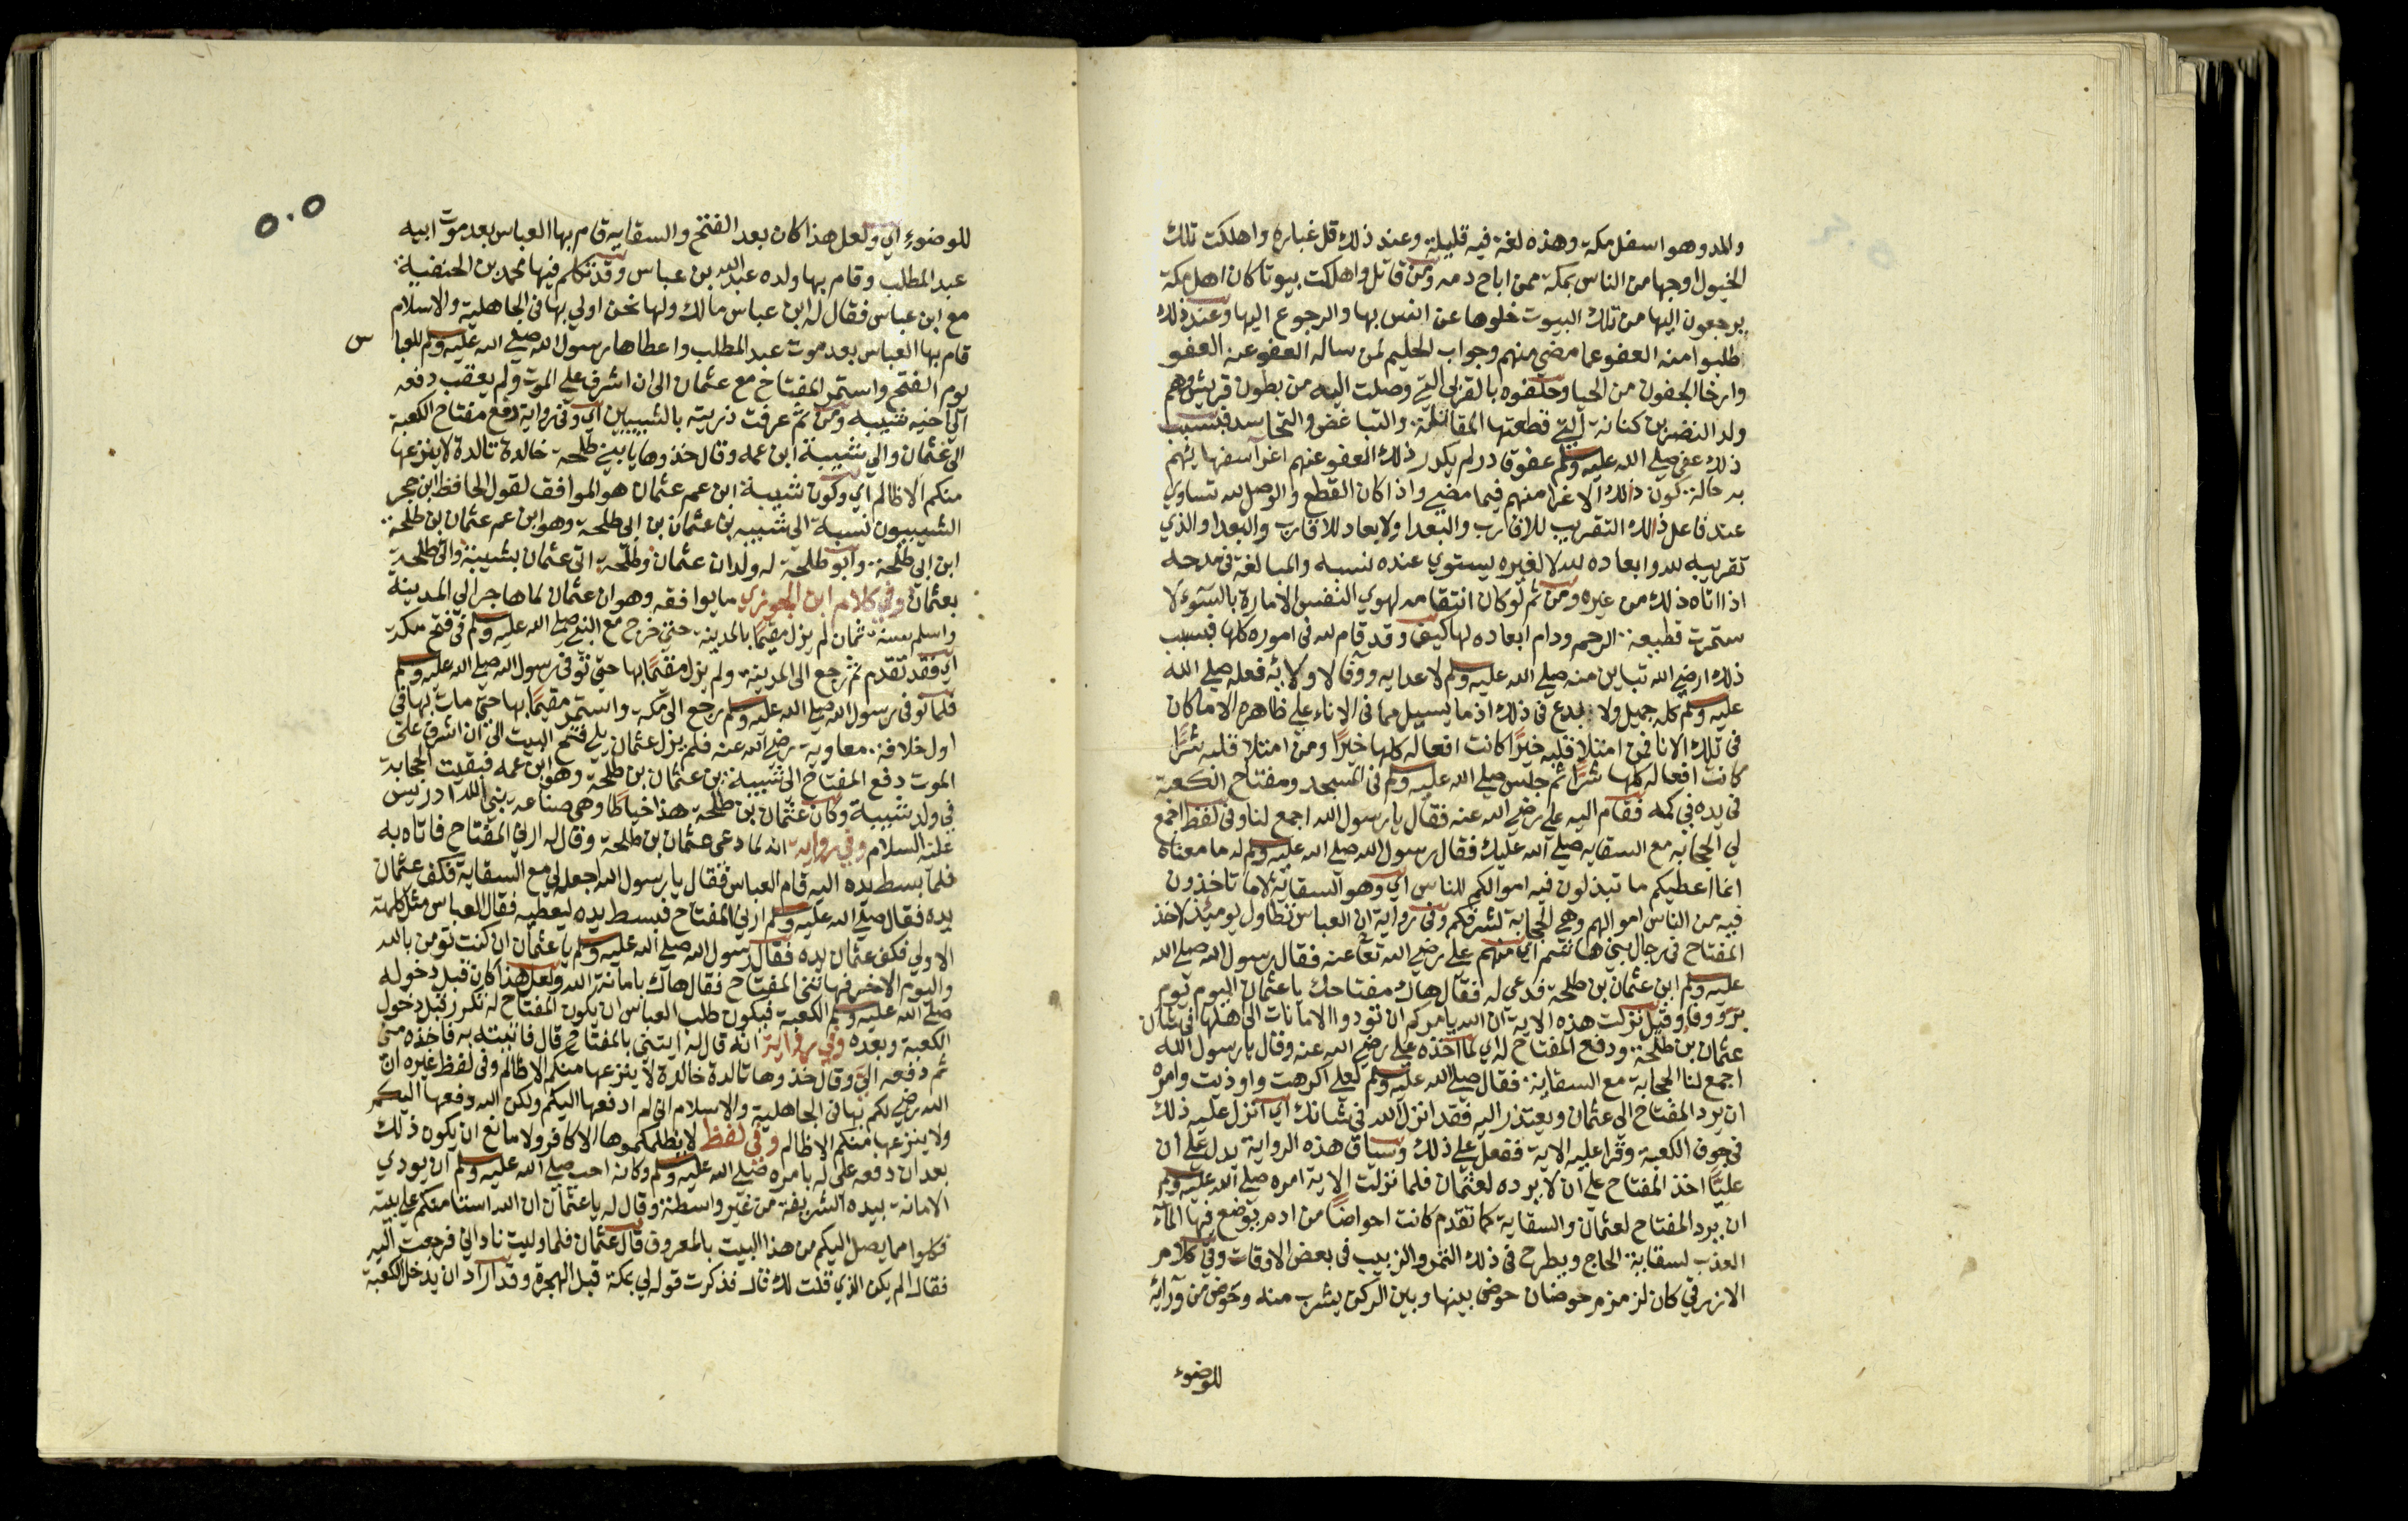 والمد وهو اسفل مكة وهذه لغة فيه قليلة وعند ذلك قل غباره واهلكت تلك
الخيول اوجها من الناس بمكة ممن اباح دمه ومن قاتل واهلكت بيوتا كان اهل مكة
يرجعون اليها من تلك البيوت خلوها عن انس بها والرجوع اليها وعند ذلك
طلبوا منه العفو عما مضي منهم وجواب الحليم لمن ساله العفو عنه العفو
وارخا الجفون من الحيا وحلفوه بالقربي التي وصلت اليه من بطون قريش وهم
ولد النضر بن كنانة التي قطعتها المقاتلة والتباغض والتحاسد فبسبب
ذلك عفي صلي الله عليه وسلم عفو قادر لم يكدر ذلك العفو عنهم اغرا سفهايهم
به حالة كون ذلك الاغرا منهم فيما مضي واذا كان القطع والوصل لله تساوي
عند فاعل ذلك التقريب للاقارب والبعدا والابعاد للاقارب والبعدا والذي
تقريبه لله وابعاده لله لا لغيره يستوي عنده نسبه والمبالغة في مدحه
اذا اتاه ذلك من غيره ومن ثم لو كان انتقامه لهوي النفس الامارة بالسوء لا
ستمرت قطيعة الرحم ودام ابعاده لها كيف وقد قام لله في اموره كلها فبسبب
ذلك ارضي الله تباين منه صلي الله عليه وسلم لاعدايه ووفا لاوليائه فعله صلي الله
عليه وسلم كله جميل ولا بدع في ذلك اذ ما يسيل مما في الاناء علي ظاهره الا ما كان
في تلك الانا فمن امتلا قلبه خيرا كانت افعاله كلها خيرا ومن امتلا قلبه شرا
كانت افعاله كلها شرا ثم جلس صلي الله عليه وسلم في المسجد ومفتاح الكعبة
في يده في كمه فقام اليه علي رضي الله عنه فقال يا رسول الله اجمع لنا وفي لفظ اجمع
لي الحجابة مع السقاية صلي الله عليك فقال رسول الله صلي الله عليه وسلم له ما معناه
انما اعطيكم ما تبذلون فيه اموالكم للناس اي وهو السقاية لا ما تاخذون
فيه من الناس اموالهم وهي الحجابة لشرفكم وفي رواية ان العباس تطاول يومئذ لاخذ
المفتاح في رجال بني هاشم اي منهم علي رضي الله تعا عنه فقال رسول الله صلي الله
عليه وسلم ابن عثمان بن طلحة فدعي له فقال هاك مفتاحك يا عثمان اليوم يوم
بر ووفا وقيل نزلت هذه الاية ان الله يامركم ان تودوا الامانات الي اهلها في شان
عثمان بن طلحة ودفع المفتاح له اي لما اخذه علي رضي الله عنه وقال يا رسول الله
اجمع لنا الحجابة مع السقاية فقال صلي الله عليه وسلم لعلي اكرهت واوذيت وامره
ان يرد المفتاح الي عثمان ويعتذر اليه فقد انزل الله في شانك اي انزل عليه ذلك
في جوف الكعبة وقرا عليه الاية ففعل علي ذلك وسياق هذه الرواية يدل علي ان
عليا اخذ المفتاح علي ان لا يرده لعثمان فلما نزلت الاية امره صلي الله عليه وسلم
ان يرد المفتاح لعثمان والسقاية كما تقدم كانت احواضا من ادم يوضع فيها المآء
العذب لسقاية الحاج ويطرح في ذلك التمر والزبيب في بعض الاوقات وفي كلام
الازرقي كان لزمزم حوضان حوض بينها وبين الركن يشرب منه وحوض من ورائه
للوضوء
٥٠٥
للوضوء اي ولعل هذا كان بعد الفتح والسقاية قام بها العباس بعد موت ابيه
عبد المطلب وقام بها ولده عبد الله بن عباس وقد تكلم فيها محمد بن الحنفية
مع ابن عباس فقال له ابن عباس مالك ولها نحن اولي بها في الجاهلية والاسلام
قام بها العباس بعد موت عبد المطلب واعطاها رسول الله صلي الله عليه وسلم للعبا س
يوم الفتح واستمر المفتاح مع عثمان الي ان اشرف علي الموت ولم يعقب دفعه
الي اخيه شيبه ومن ثم عرفت ذريته بالشيبيين اي وفي رواية دفع مفتاح الكعبة
الي عثمان والي شيبة ابن عمه وقال خذوها يا بني طلحة خالدة تالدة لا ينزعها
منكم الا ظالم اي وكون شيبة ابن عم عثمان هو الموافق لقول الحافظ ابن حجر
الشيبيون نسبة الي شيبه بن عثمان بن ابي طلحة وهو ابن عم عثمان بن طلحة
ابن ابي طلحة وابو طلحة له ولدان عثمان وطلحة اتي عثمان بشيبة واتي طلحة
بعثمان وفي كلام ابن الجوزي ما يوافقه وهو ان عثمان لما هاجر الي المدينة
واسلم سنة ثمان لم يزل مقيما بالمدينة حتي خرج مع النبي صلي الله عليه وسلم في فتح مكة
اي فقد تقدم ثم رجع الي المدينة ولم يزل مقيما بها حتي توفي رسول الله صلي الله عليه وسلم
فلما توفي رسول الله صلي الله عليه وسلم رجع الي مكة واستمر مقيما بها حتي مات بها في
اول خلافة معاوية رضي الله عنه فلم يزل عثمان يلي فتح البيت الي ان اشرف علي
الموت دفع المفتاح الي شيبة بن عثمان بن طلحة وهو ابن عمه فبقيت الحجابة
في ولد شيبة وكان عثمان بن طلحة هذا خياطا وهي صناعة نبي الله ادريس
عليه السلام وفي رواية انه لما دعي عثمان بن طلحة وقال له ارني المفتاح فاتاه به
فلما بسط يده اليه قام العباس فقال يا رسول الله اجعله لي مع السقاية فكف عثمان
يده فقال صلي الله عليه وسلم ارني المفتاح فبسط يده ليعطيه فقال العباس مثل كلمته
الاولي فكف عثمان يده فقال رسول الله صلي الله عليه وسلم يا عثمان ان كنت تومن بالله
واليوم الاخر فهاتني المفتاح فقال هاك بامانة الله ولعل هذا كان قبل دخوله
صلي الله عليه وسلم الكعبة فيكون طلب العباس ان يكون المفتاح له تكرر قبل دخول
الكعبة وبعده وفي رواية انه قال له ايتني بالمفتاح قال فاتيته به فاخذه مني
ثم دفعه الي وقال خذوها تالدة خالدة لا ينزعها منكم الا ظالم وفي لفظ غيره ان
الله رضي لكم بها في الجاهلية والاسلام اني لم ادفعها اليكم ولكن الله دفعها اليكم
ولا ينزعها منكم الا ظالم وفي لفظ لا يظلمكموها الا كافر ولا مانع ان يكون ذلك
بعد ان دفعه علي له بامره صلي الله عليه وسلم وكانه احب صلي الله عليه وسلم ان يودي
الامانة بيده الشريفة من غير واسطة وقال له يا عثمان ان الله استامنكم علي بيته
فكلوا مما يصل اليكم من هذا البيت بالمعروف قال عثمان فلما وليت ناداني فرجعت اليه
فقال الم يكن الذي قلت لك قال فذكرت قوله لي بمكة قبل الهجرة وقد اراد ان يدخل الكعبة